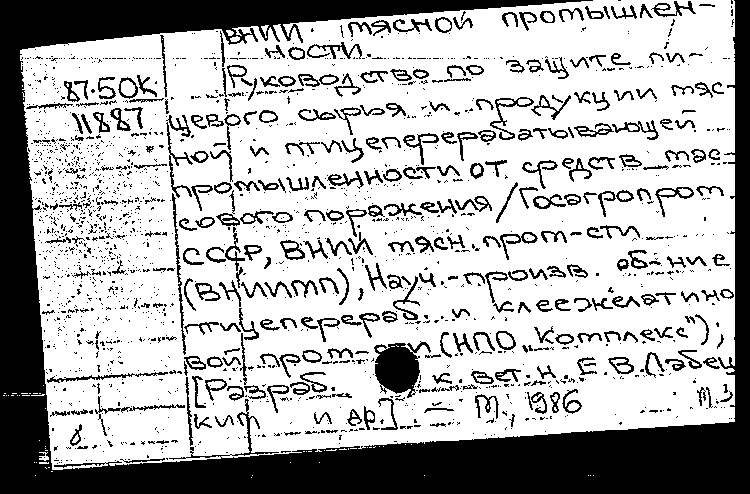 ВНИИ мясной промышлен-
ности.
87-50К
Руководство по защите пи-
11887
щевого сырья и продукции мяс-
ной и птицеперерабатывающей
промышленности от средств мас-
сового поражения / Госагропром
СССР, ВНИИ мясн. пром-сти
(ВНИИМП), Науч.-произв. об-ние
птицеперераб. и клеежелатино
вой пром-сти (НПО „Комплекс");
[Разраб. к. вет. н. Е.В.
ким и др.] — М., 1986
8